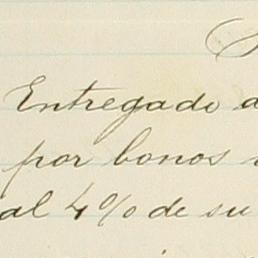 Entregado a
por bonos
al 4% de su